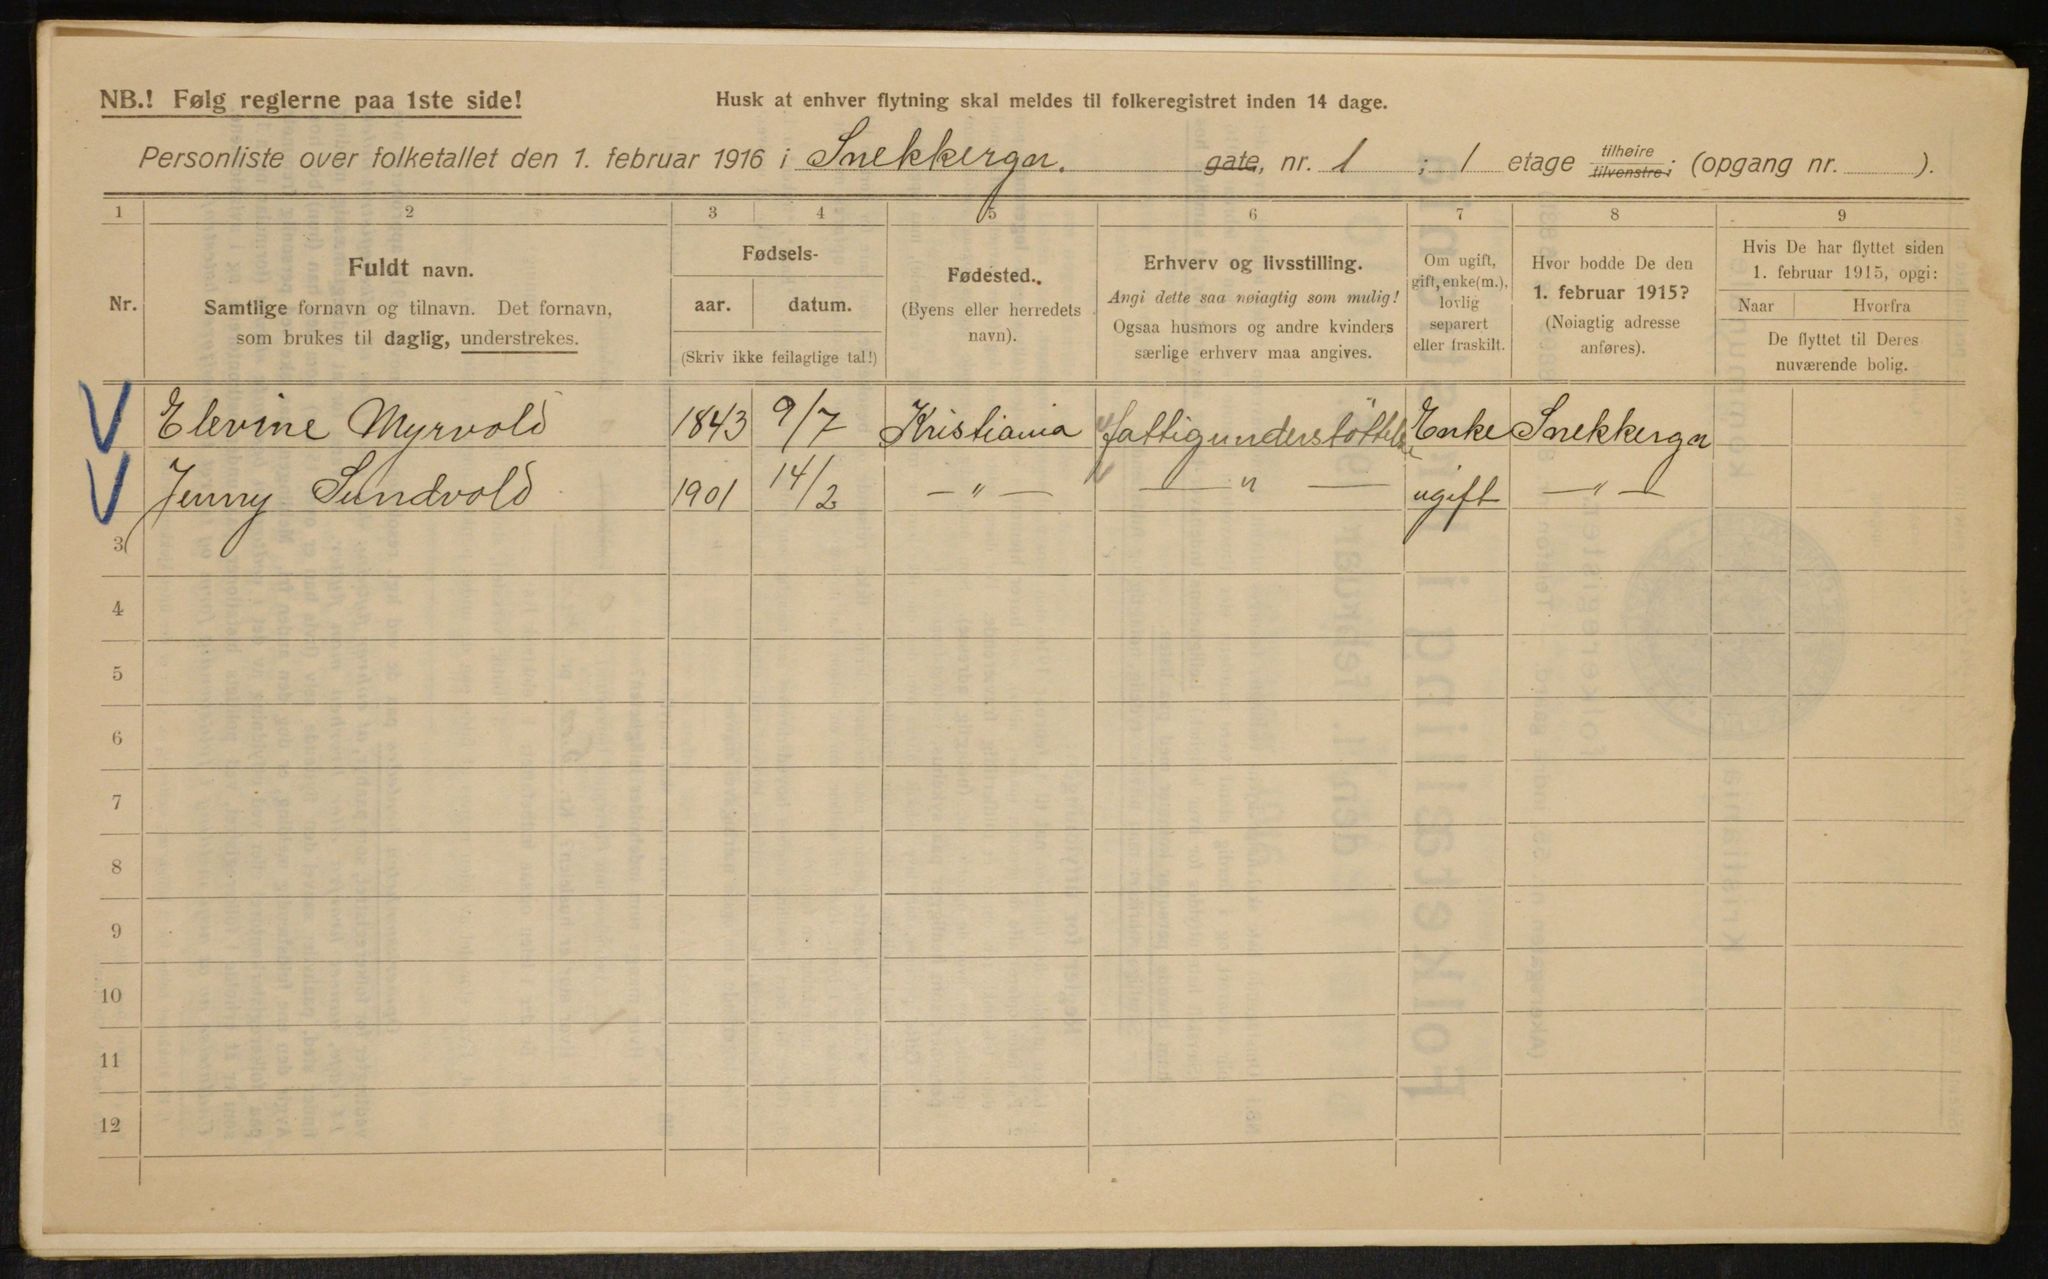 NB.! Følg reglerne paa 1ste side!
Husk at enhver flytning skal meldes til folkeregistret inden 14 dage.
Personliste over folketallet den 1. februar 1916 i Snekkerga. gate, nr. 1 ; 1 etage tilhøire tilvenstre; (opgang nr. ).
1 2 3 4 5 6 7 8 9
Nr.
Fuldt navn.
Samtlige fornavn og tilnavn. Det fornavn,
som brukes til daglig, understrekes.
Fødsels-
aar. datum.
(Skriv ikke feilagtige tal!)
Fødested.
(Byens eller herredets
navn).
Erhverv og livsstilling.
Angi dette saa nøiagtig som mulig!
Ogsaa husmors og andre kvinders
særlige erhverv maa angives.
Om ugift,
gift, enke(m.),
lovlig
separert
eller fraskilt.
Hvor bodde De den
1. februar 1915?
(Nøiagtig adresse
anføres).
Hvis De har flyttet siden
1. februar 1915, opgi:
Naar Hvorfra
De flyttet til Deres
nuværende bolig.
Elevine Myrvold 1843 9/7 Kristiania fattigunderstöttelse Enke Snekkerga
Jenny Sundvold 1901 14/2 — " — — " — ugift — " —
3
4
5
6
7
8
9
10
11
12